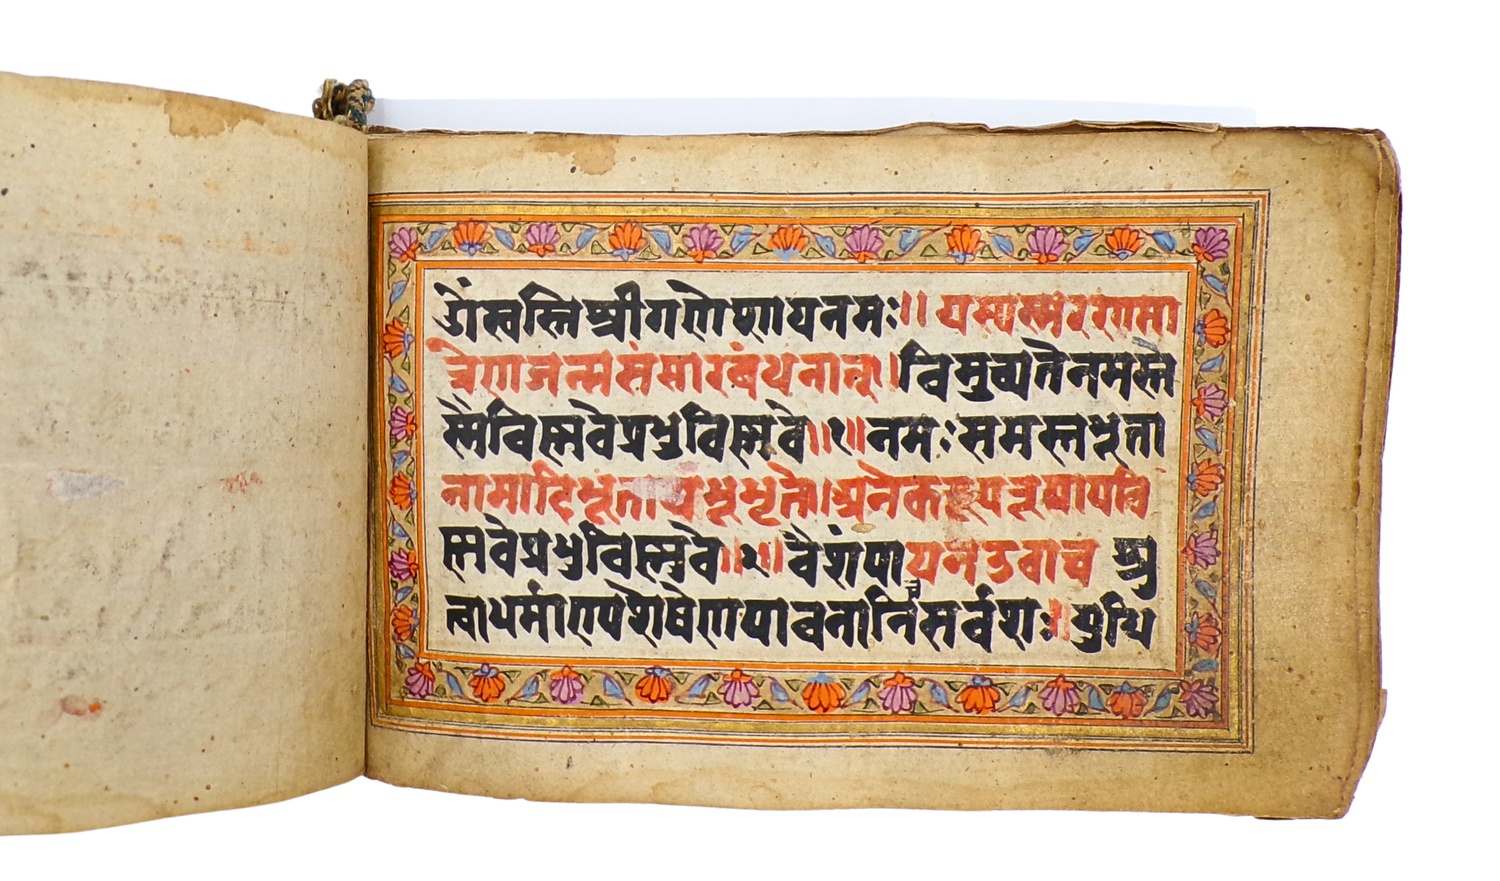 ओंस्वस्तिश्रीगणेशायनमः॥ यस्यस्मरणमा
त्रेणजन्मसंसारबंधनात्।विमुच्यतेनमस्त
स्मैविस्नवेप्रभुविस्नवे॥१॥नमःसमस्तभूता
नामादिभूतायभूभृते।अनेकरूपरूपायवि
स्नवेप्रभुविस्नवे॥२॥वैशंपायनउवाच श्रु
त्वाधर्माण्यशेषेणपावनानिचसर्वशः॥युधि